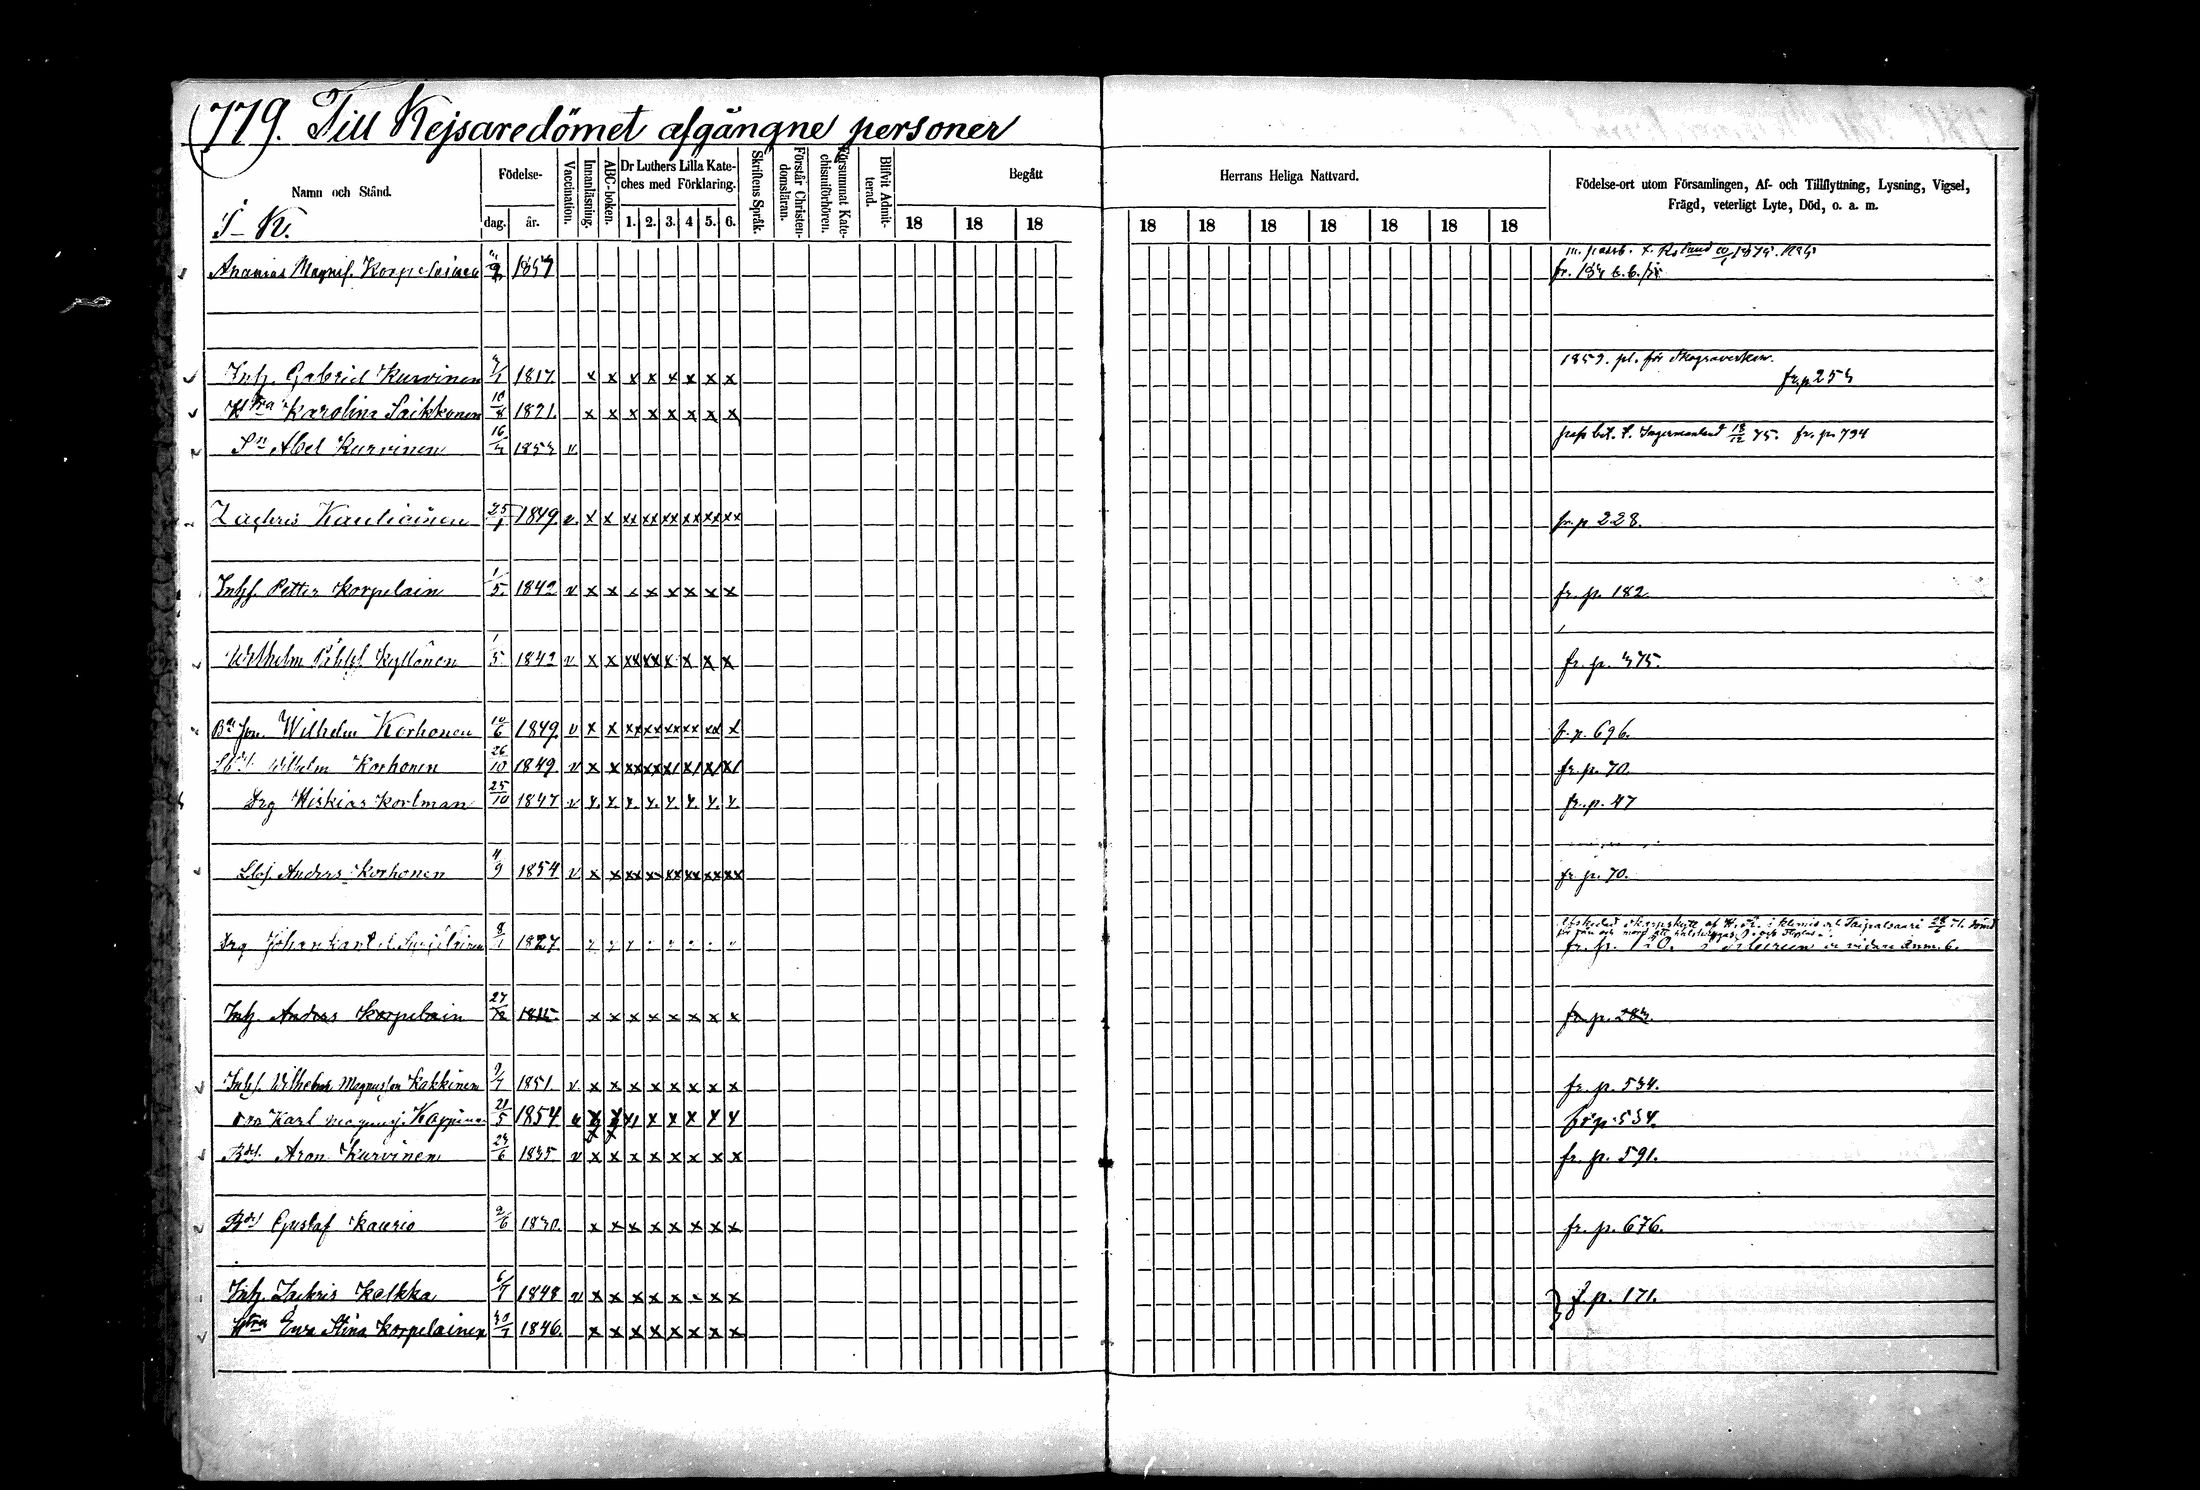 779. Till Kejsaredömet afgångne personer
Namn och Stånd.
Födelse-
dag. år.
Vaccination.
Innanläsning.
ABC-boken.
Dr Luthers Lilla Kate-
ches med Förklaring.
1. 2. 3. 4 5. 6.
Skriftens Språk.
Förstår Christen-
domsläran.
Försummat Kate-
chismiförhören.
Blifvit Admit-
terad.
Begått
18 18 18
Herrans Heliga Nattvard.
18 18 18 18 18 18 18
Födelse-ort utom Församlingen, Af- och Tillflyttning, Lysning, Vigsel,
Frägd, veterligt Lyte, Död, o. a. m.
I-K.
Ananias 1857
1859. pl. för
Inh. Gabriel Kurvinen 1817. x x x x x x x x fr. p 253
Hru Karolina Saikkonen 10/8 1821. x x x x x x x x
Sn Abel Kurvinen 1853 v. pass bet. t. Ingermanland 18/12 75. fr. p. 794
Zachris 25/1 1849. v. x x xx xx xx xx xx xx fr. p 228.
Inhs. Petter Korpelain 1/5. 1842 v x x x x x x x x fr. p. 182
Wilhelm Kyllönen 1/5 1842 v x x xx xx x x x x fr. p. 375.
Wilhelm Korhonen 10/6 1849. v x x xx xx xx xx xx x fr. p. 696.
Wilhelm Korhonen 26/10 1849 v x x fr. p. 70.
Drg Hiskias Kortman 25/10 1847 v x. x x x. x. x. x. x. fr. p. 47
Anders Korhonen 4/9 1854 v x x xx xx xx xx xx xx fr. p. 70.
Drg Johan 8/1 1827
Inh. Anders Korpelain 27/12 1815 x x x x x x x x fr. p. 283.
Inhs. Wilhelm Magnusson Kakkinen 9/7 1851. v x x x x x x x x fr. p. 534.
Karl 21/5 1854 fr. p. 534.
Aron Kurvinen 23/6 1835 v x x x x x x x x fr. p. 591.
Gustaf Kaurio 2/6 1830. x x x x x x x x fr. p. 676.
Inh. Zachris Kelkka 6/7 1848 v x x x x x x x x } f. p. 171.
Hru Eva Stina Korpelainen 30/7 1846. x x x x x x x x